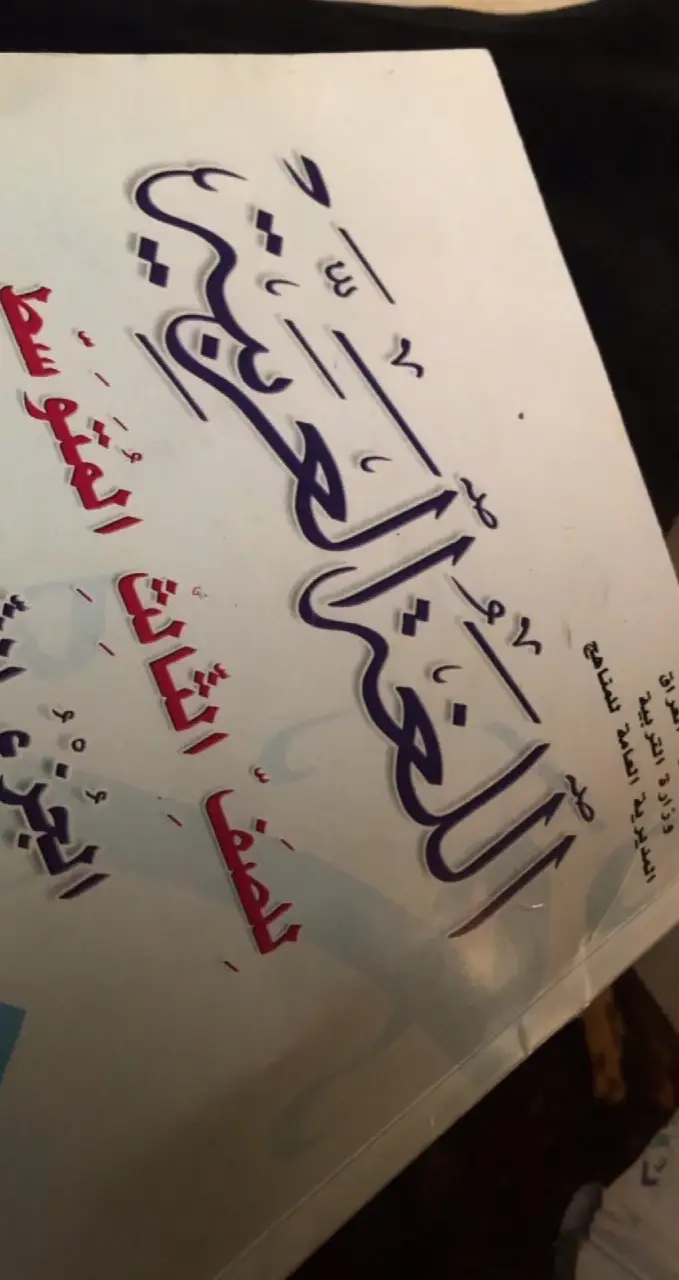 العراق
وزارة التربية
المديرية العامة للمناهج
اللُّغَةُ العَرَبِيَّةُ
لِلصَّفِّ الثَّالِثِ المُتَوَسِّطِ
الجُزْءُ